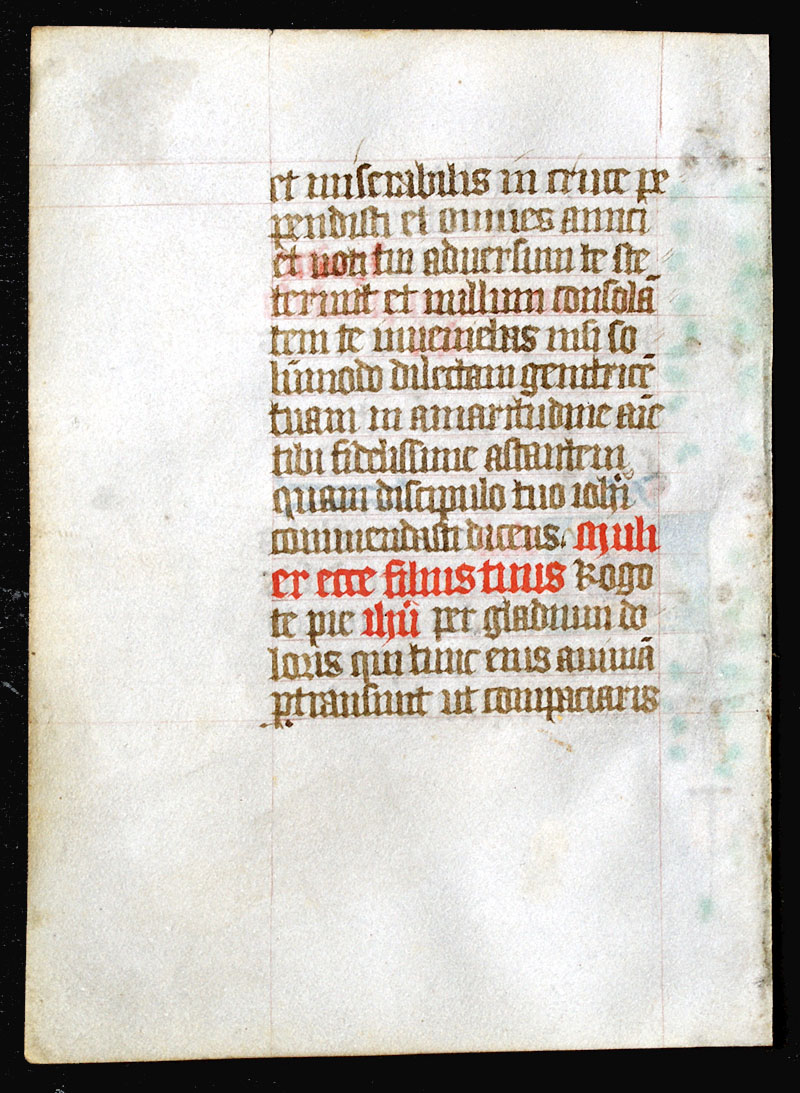 et miserabilis in cruce pe
pendisti et omnes amici
et noti tui adversum te ste
terunt et nullum consolā
tem te inveniebas nisi so
lūmodo dilectam genitricē
tuam in amaritudine aīe
tibi fidelissime astantem
quam discipulo tuo iohī
commendasti dicens. Muli
er ecce filius tuus Rogo
te pie ihū per gladium do
loris qui tunc eius animā
ptransivit ut compaciaris